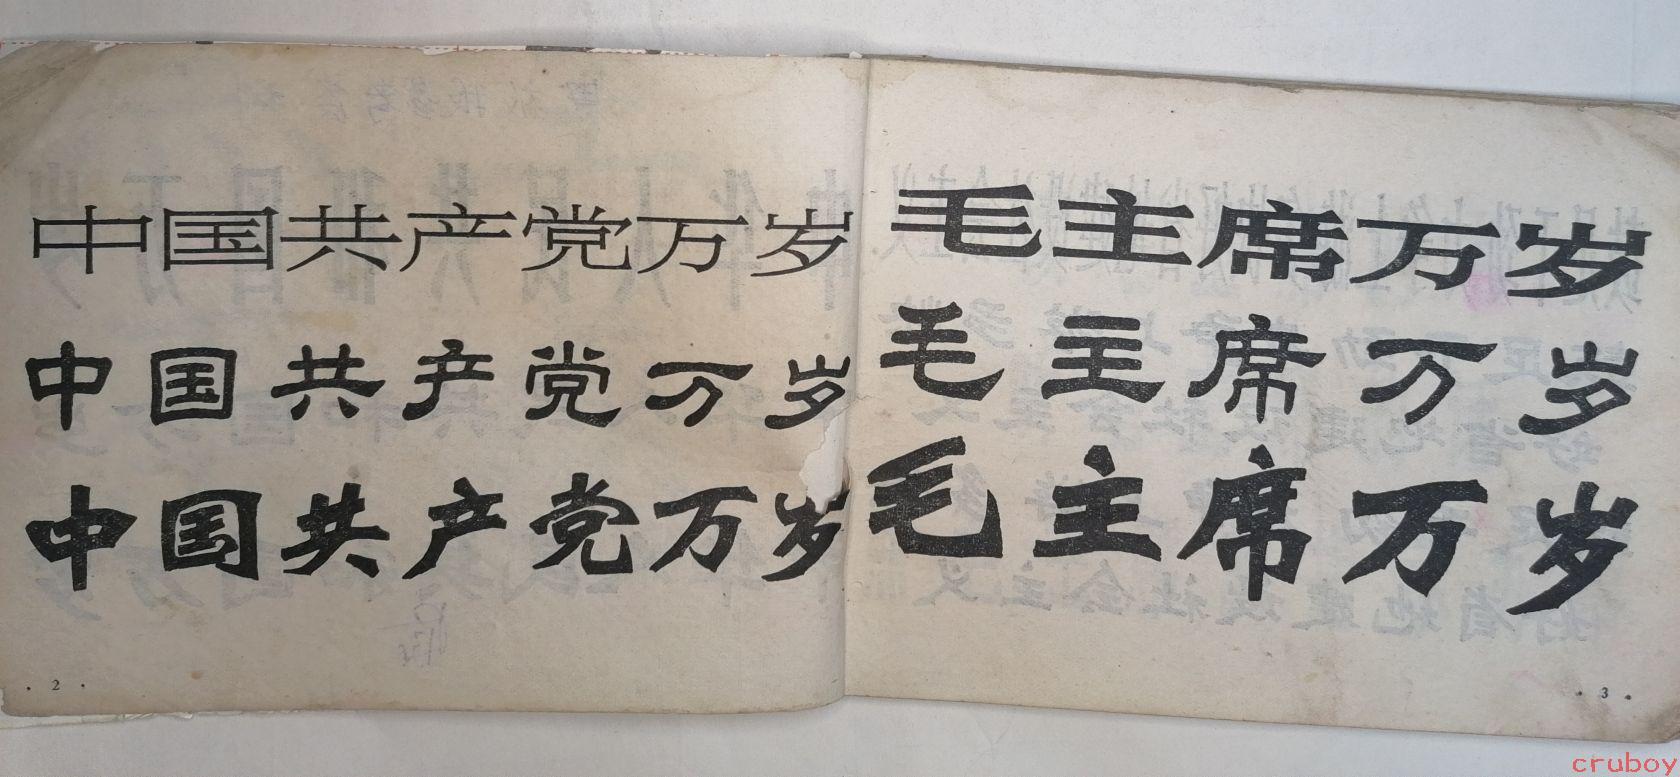 中国共产党万岁
中国共产党万岁
中国共产党万岁
· 2 ·
毛主席万岁
毛主席万岁
毛主席万岁
· 3 ·
cruboy